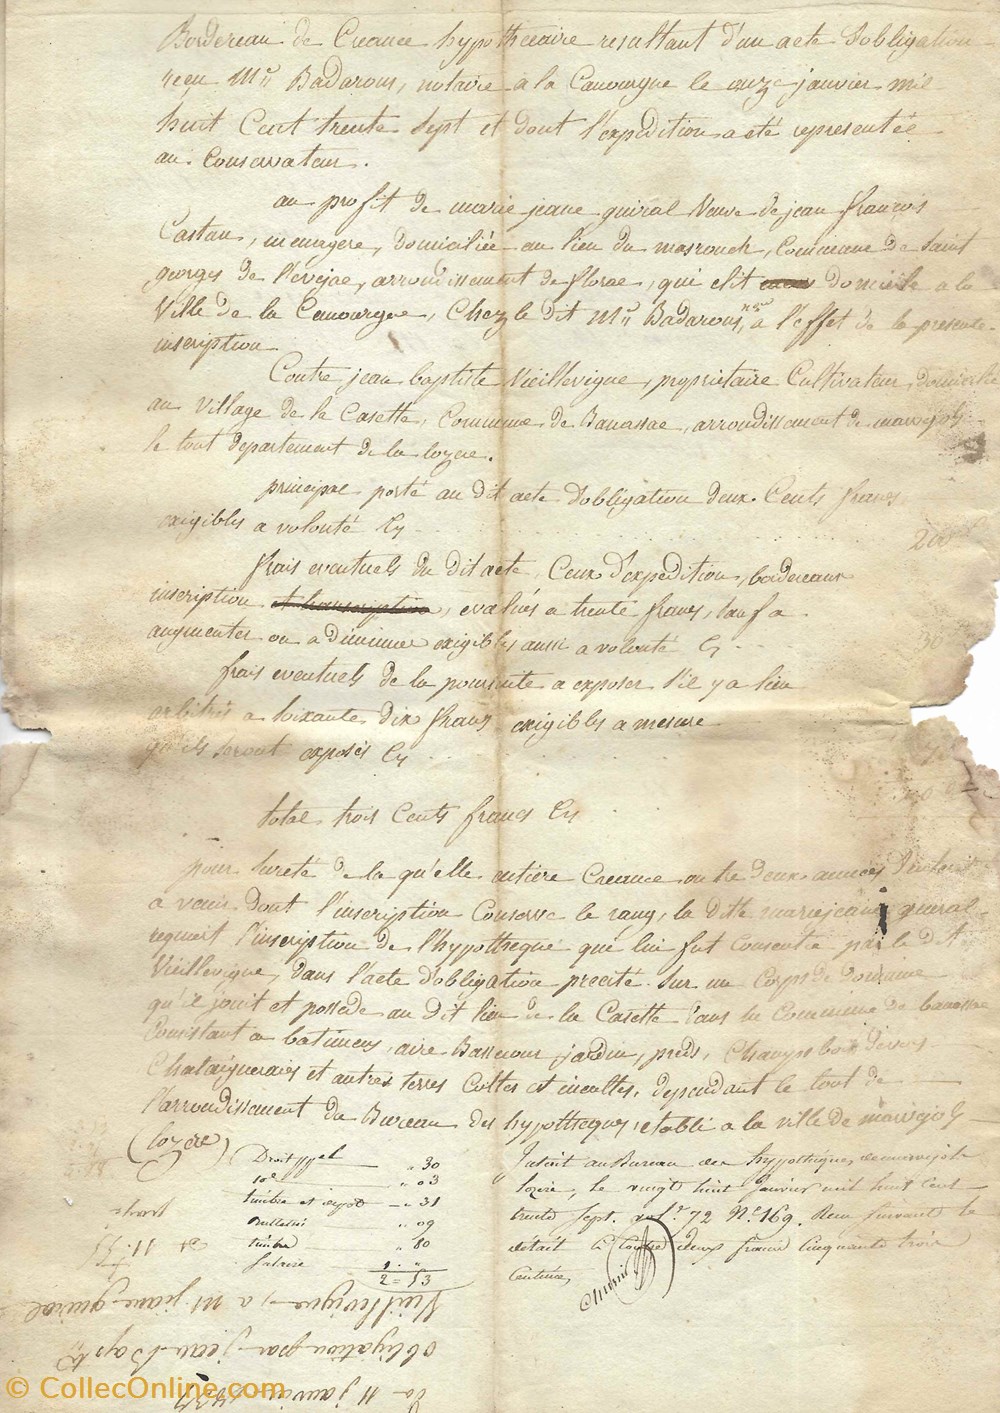 Bordereau de Creance hypothecaire resultant d'un acte d'obligation
recu Mre Badarous, notaire a la Canourgue le onze janvier mil
huit Cent trente Sept et dont l'expedition a eté representée
au Conservateur.
au profit de marie jeane quiral Veuve de jean francois
Castan, menagere, domiciliée au lieu du masrouch, commune de Saint
georges de l'evejac, arrondissement de florac, qui elit domicile a la
Ville de la Canourgue, Chez le dit Mre Badarous, a l'effet de la presente
inscription
Contre jean baptiste Vieillevigne, proprietaire Cultivateur, domicilié
au village de la Casette, Commune de Banassac, arrondissement de marvejols
le tout departement de la lozere.
principal porté au dit acte d'obligation deux Cents francs
exigibles a volonté Cy 200
frais eventuels du dit acte, Ceux d'expedition, bordereaux
inscription et transcription, evalués a trente francs, sauf a
augmenter ou a diminuer exigibles aussi a volonté Cy 30
frais eventuels de la poursuite a exposer s'il y a lieu
arbitrés a soixante dix francs exigibles a mesure
qu'ils seront exposés Cy
total trois Cents francs Cy
pour sureté de la qu'elle entière Creance outre deux années d'interets
a venir dont l'inscription Conserve le rang, la ditte marie jeane quiral
requiert l'inscription de l'hypotheque que lui fut consentie par le dit
Vieillevigne, dans l'acte d'obligation precité. Sur un Corps de domaine
qu'il jouit et possede au dit lieu de la Casette dans la Commune de banassac
Consistant a batimens, aire Bassecour, jardin, preds, Champs bois divers
Chataigneraies et autres terres Cultes et incultes, dependant le tout de
l'arrondissement du Bureau des hypotheques, etabli a la ville de marvejols
(lozere)
Droit ppal " 30
10e " 03
timbre et depot " 31
Bulletin " 09
timbre " 80
Salaire 1 "
2 = 53
Inscrit au Bureau des hypotheques de marvejols
lozere, le vingt huit janvier mil huit cent
trente Sept. vol. 72 No 169. Recu suivant le
détail ci contre deux francs cinquante trois
centimes
Vieillevigne, a M. jeane quiral
obligation par jean Bapte
du 11 janvier 1837
© CollecOnline.com